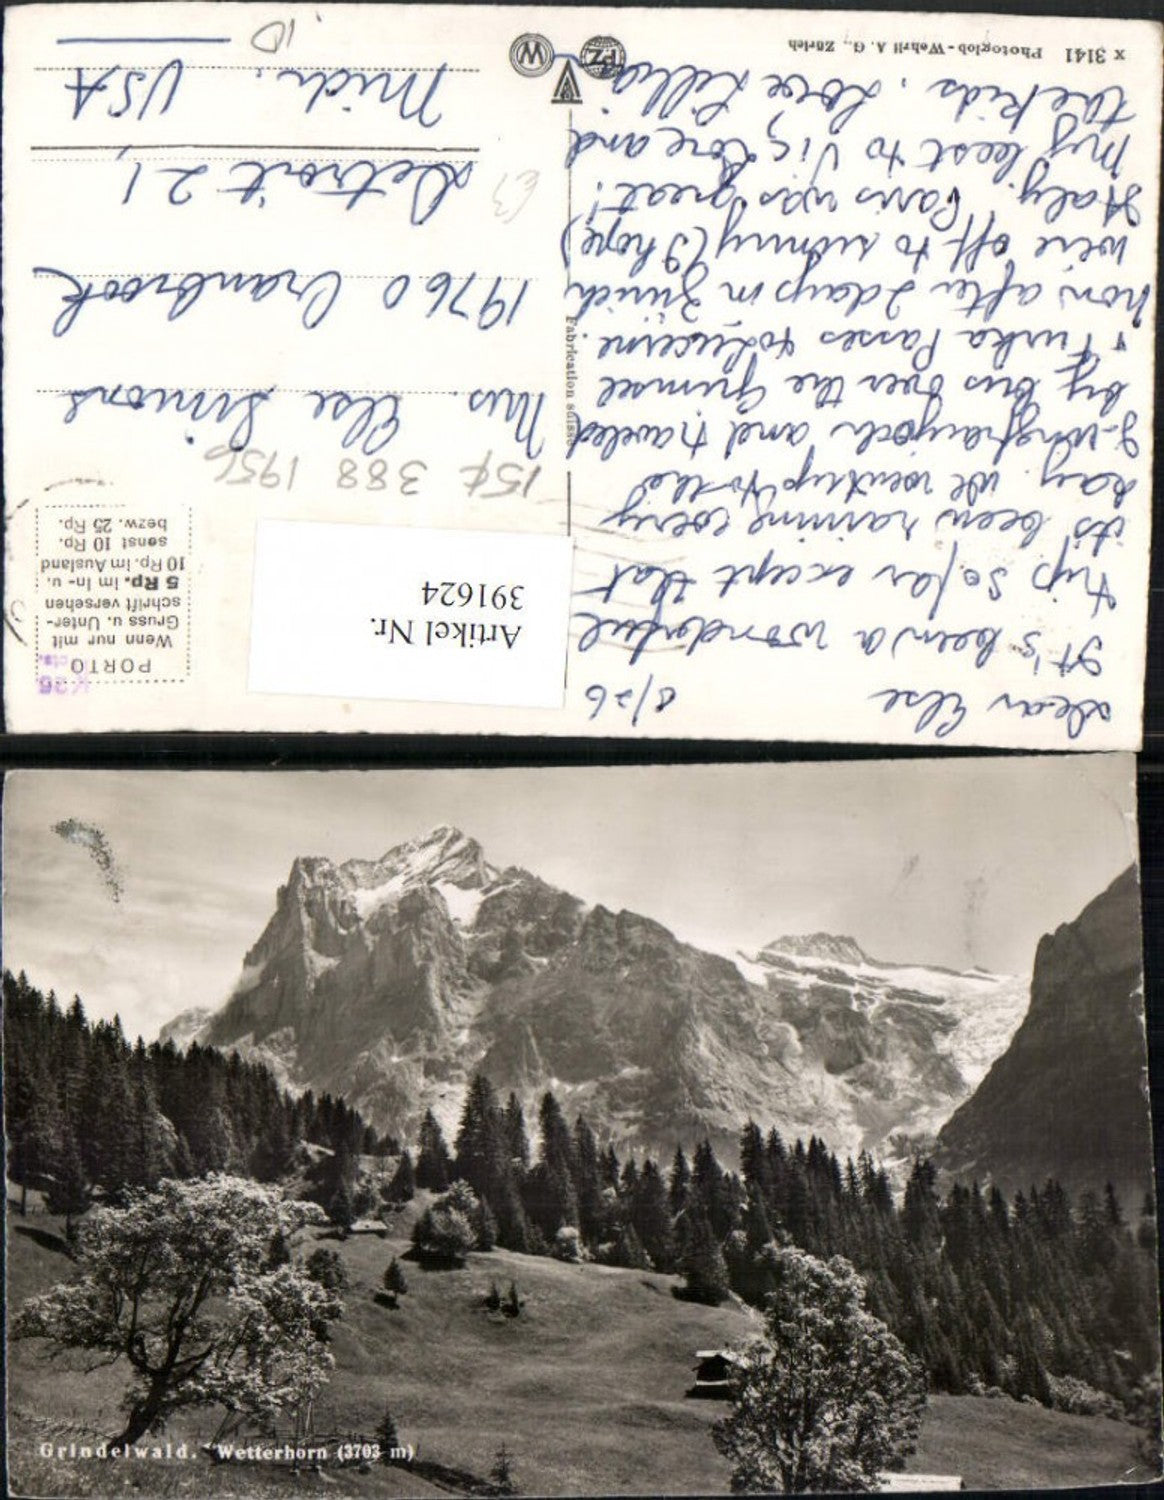 Dear Else 8/26
It's been a wonderful
trip so far except that
it's been raining every
day. We went up to the
Jungfraujoch and traveled
by bus over the Grimsel
+ Furka Passes to Lucerne.
now after 2 days in Zürich,
we're off to sunny (I hope)
Italy. Paris was great!
My best to Vic, Lore and
the kids. Love Lillia
PORTO
Wenn nur mit
Gruss u. Unter-
schrift versehen
5 Rp. im In- u.
10 Rp. im Ausland
sonst 10 Rp.
bezw. 25 Rp.
K 25
cts.
Artikel Nr.
391624
15¢ 388 1956
Mrs. Else Simons
19760 Cranbrook
Detroit 21,
Mich. USA
Fabrication suisse
PZ
W
X 3141 Photoglob-Wehrli A. G., Zürich
Grindelwald. Wetterhorn (3703 m)